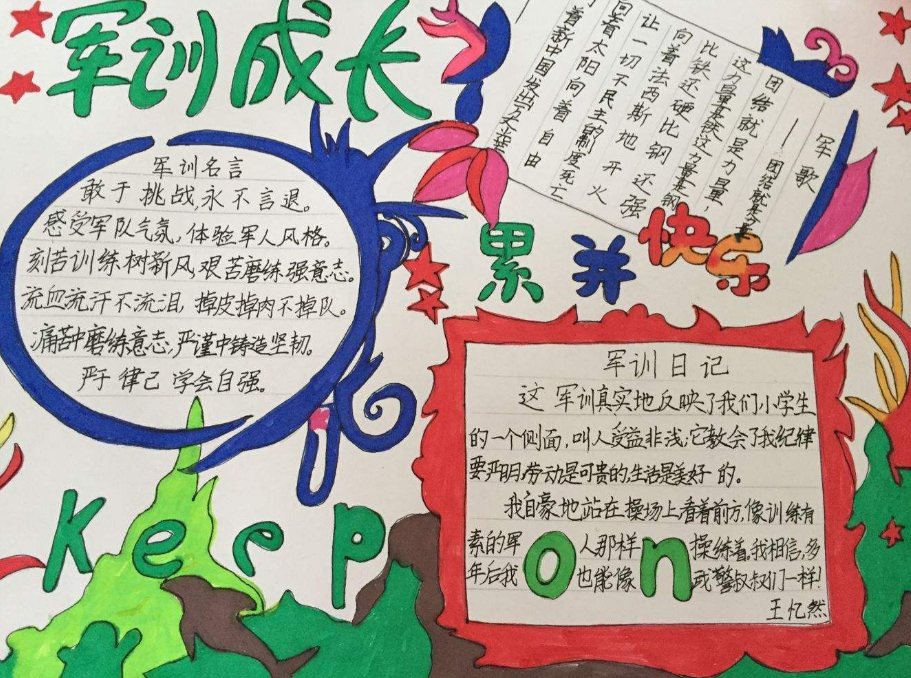 军训成长
军训名言
敢于挑战永不言退。
感受军队气氛，体验军人风格。
刻苦训练树新风，艰苦磨练强意志。
流血流汗不流泪，掉皮掉肉不掉队。
痛苦中磨练意志，严谨中铸造坚韧。
严于律己学会自强。
军歌
——团结就是力量
团结就是力量，
这力量是铁这力量是钢
比铁还硬比钢还强
向着法西斯地开火
让一切不民主的制度死亡
向着太阳向着自由
着新中国发出
累并快乐
军训日记
这军训真实地反映了我们小学生
的一个侧面，叫人受益非浅，它教会了我纪律
要严明，劳动是可贵的，生活是美好的。
我自豪地站在操场上看着前方，像训练有
素的军人那样操练着，我相信，多
年后我也能像武警叔叔们一样！
王忆然
Keep on